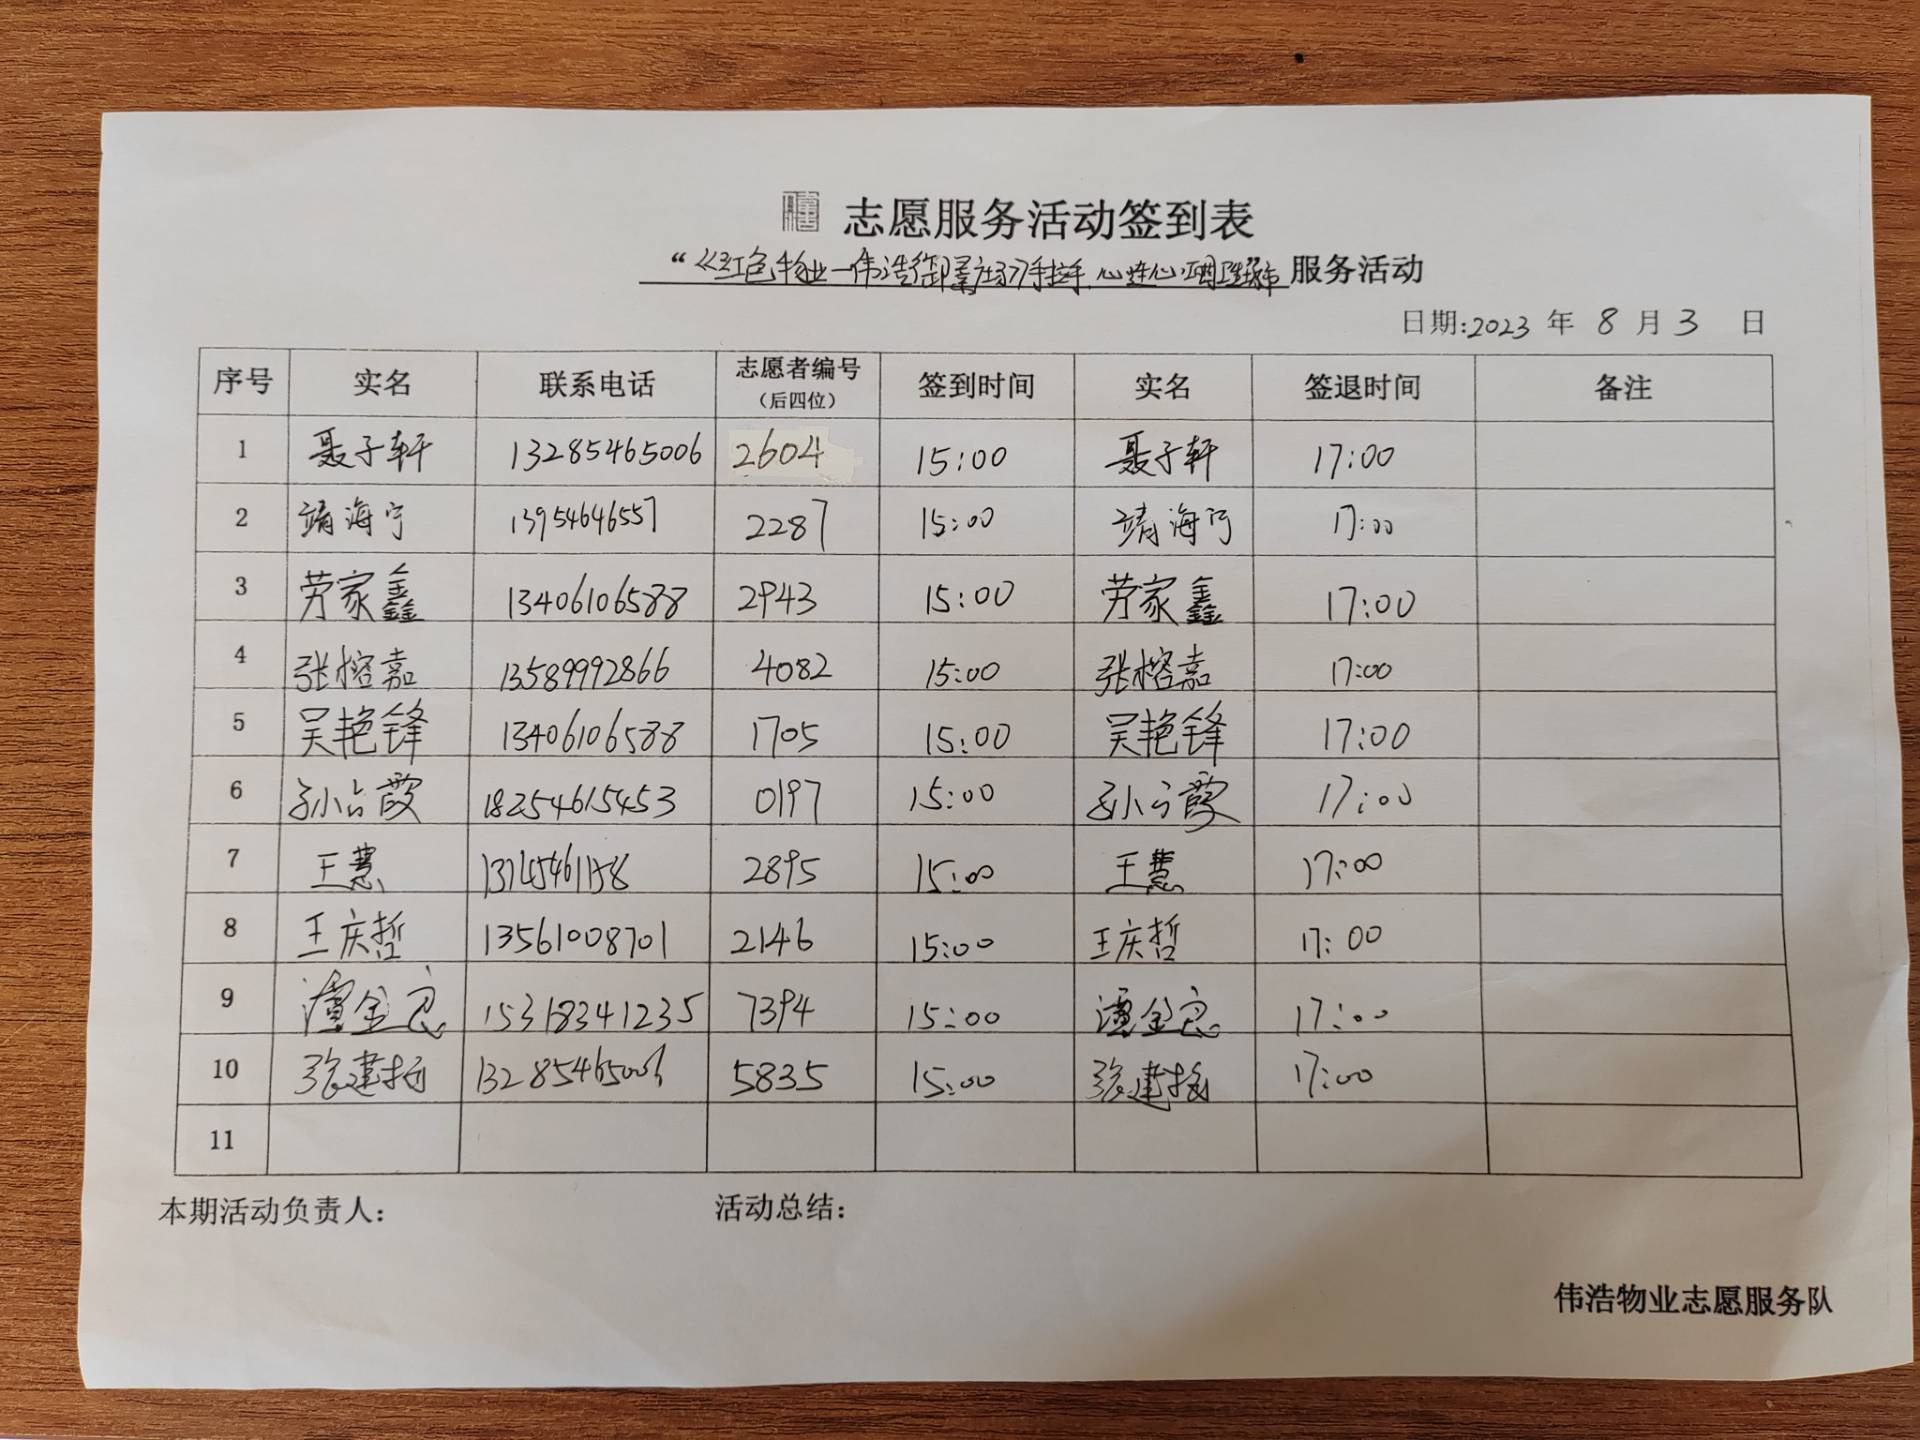 志愿服务活动签到表
“红色物业—伟浩御景 手拉手 心连心 服务活动
日期:2023 年 8 月 3 日
序号 实名 联系电话 志愿者编号（后四位） 签到时间 实名 签退时间 备注
1 聂子轩 13285465006 2604 15:00 聂子轩 17:00
2 靖海宁 13954646557 2287 15:00 靖海宁 17:00
3 劳家鑫 13406106588 2943 15:00 劳家鑫 17:00
4 张榕嘉 13589992866 4082 15:00 张榕嘉 17:00
5 吴艳锋 13406106588 1705 15:00 吴艳锋 17:00
6 孙 霞 18254615453 0197 15:00 孙 霞 17:00
7 王慧 2895 15:00 王慧 17:00
8 王庆哲 13561008701 2146 15:00 王庆哲 17:00
9 15318341235 7394 15:00 17:00
10 13285465006 5835 15:00 17:00
11
本期活动负责人： 活动总结：
伟浩物业志愿服务队